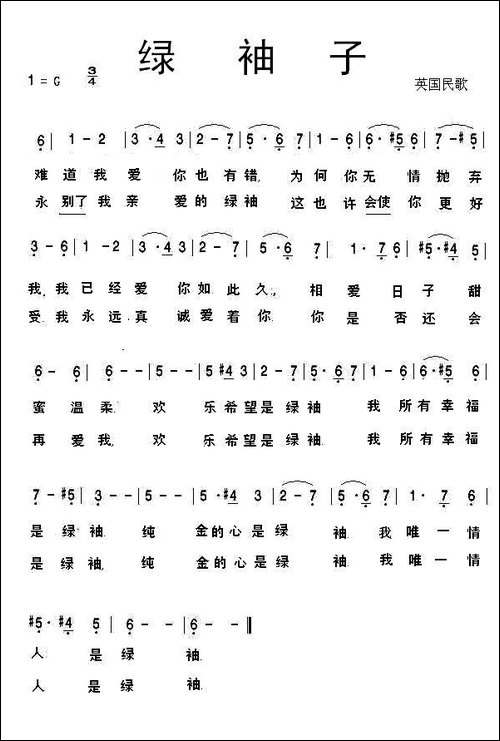 绿 袖 子
1 = G 3/4
英国民歌
6 | 1 - 2 | 3 · 4 3 | 2 - 7 | 5 · 6 7 | 1 - 6 | 6 · #5 6 | 7 - #5 |
难 道 我 爱 你 也 有 错, 为 何 你 无 情 抛 弃
永 别了 我 亲 爱 的 绿 袖 这 也 许 会使 你 更 好
3 - 6 | 1 - 2 | 3 · 4 3 | 2 - 7 | 5 · 6 7 | 1 · 7 6 | #5 · #4 5 |
我, 我 已 经 爱 你 如 此 久, 相 爱 日 子 甜
受. 我 永 远 真 诚 爱 着 你. 你 是 否 还 会
6 - 6 | 6 - - | 5 - - | 5 #4 3 | 2 - 7 | 5 · 6 7 | 1 - 6 | 6 · #5 6 |
蜜 温 柔. 欢 乐 希 望 是 绿 袖 我 所 有 幸 福
再 爱 我, 欢 乐 希 望 是 绿 袖. 我 所 有 幸 福
7 - #5 | 3 - - | 5 - - | 5 · #4 3 | 2 - 7 | 5 · 6 7 | 1 · 7 6 |
是 绿 袖. 纯 金 的 心 是 绿 袖. 我 唯 一 情
是 绿 袖, 纯 金 的 心 是 绿 袖 我 唯 一 情
#5 · #4 5 | 6 - - | 6 - ‖
人 是 绿 袖.
人 是 绿 袖.